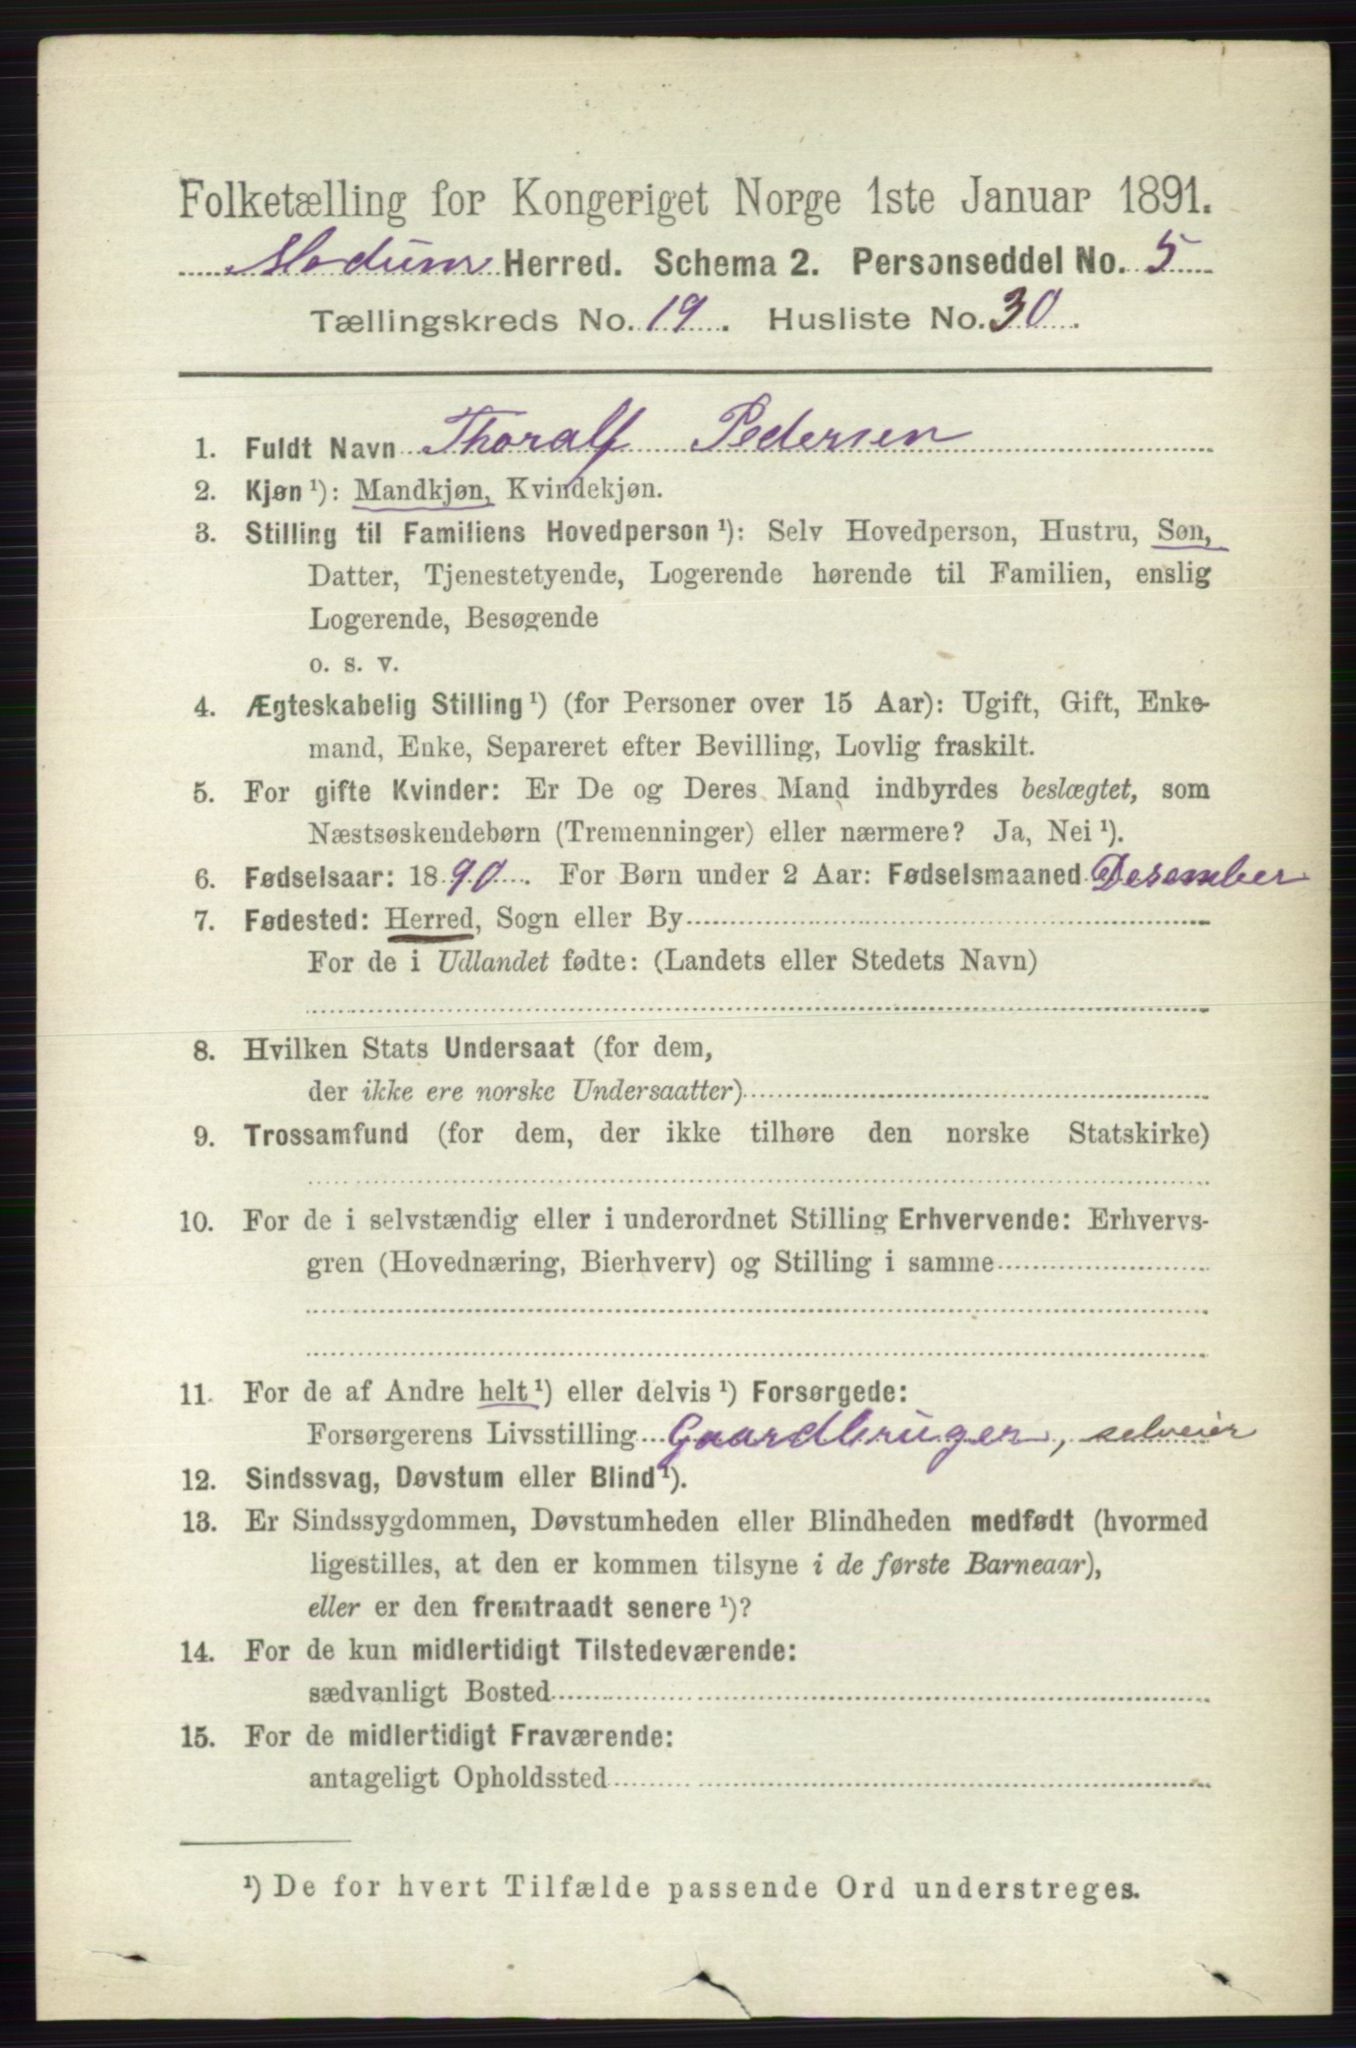 Folketælling for Kongeriget Norge 1ste Januar 1891.
Modum Herred. Schema 2. Personseddel No. 5
Tællingskreds No. 19. Husliste No. 30.
1. Fuldt Navn Thoralf Pedersen
2. Kjøn¹): Mandkjøn, Kvindekjøn.
3. Stilling til Familiens Hovedperson¹): Selv Hovedperson, Hustru, Søn,
Datter, Tjenestetyende, Logerende hørende til Familien, enslig
Logerende, Besøgende
o. s. v.
4. Ægteskabelig Stilling¹) (for Personer over 15 Aar): Ugift, Gift, Enke-
mand, Enke, Separeret efter Bevilling, Lovlig fraskilt.
5. For gifte Kvinder: Er De og Deres Mand indbyrdes beslægtet, som
Næstsøskendebørn (Tremenninger) eller nærmere? Ja, Nei¹).
6. Fødselsaar: 1890. For Børn under 2 Aar: Fødselsmaaned Desember
7. Fødested: Herred, Sogn eller By
For de i Udlandet fødte: (Landets eller Stedets Navn)
8. Hvilken Stats Undersaat (for dem,
der ikke ere norske Undersaatter)
9. Trossamfund (for dem, der ikke tilhøre den norske Statskirke)
10. For de i selvstændig eller i underordnet Stilling Erhvervende: Erhvervs-
gren (Hovednæring, Bierhverv) og Stilling i samme
11. For de af Andre helt¹) eller delvis¹) Forsørgede:
Forsørgerens Livsstilling Gaardbruger, selveier
12. Sindssvag, Døvstum eller Blind¹).
13. Er Sindssygdommen, Døvstumheden eller Blindheden medfødt (hvormed
ligestilles, at den er kommen tilsyne i de første Barneaar),
eller er den fremtraadt senere¹)?
14. For de kun midlertidigt Tilstedeværende:
sædvanligt Bosted
15. For de midlertidigt Fraværende:
antageligt Opholdssted
¹) De for hvert Tilfælde passende Ord understreges.